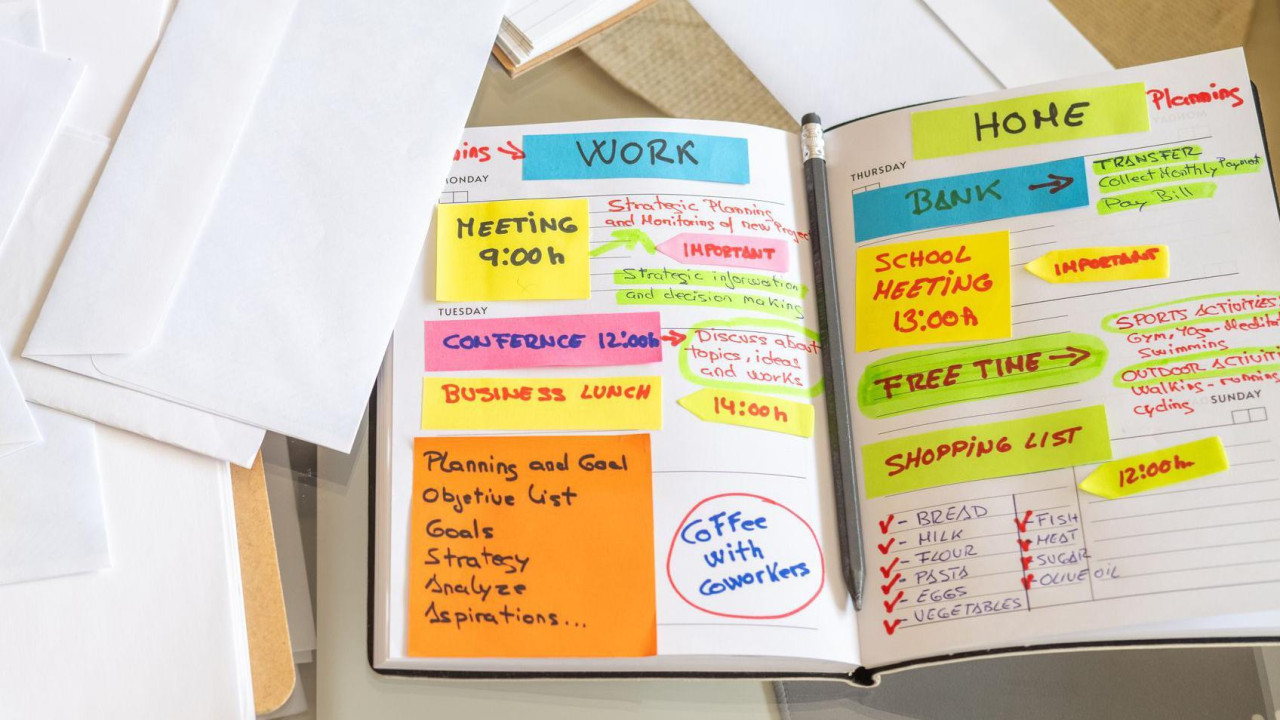 WORK
MEETING
9:00h
Strategic Planning
and Monitoring of new
IMPORTANT
Strategic information
and decision making
TUESDAY
CONFERNCE 12:00h
Discuss about
topics, ideas
and works
BUSINESS LUNCH
14:00h
Planning and Goal
Objetive List
Goals
Strategy
Analyze
Aspirations...
Coffee
with
coworkers
HOME
Planning
THURSDAY
BANK
TRANSFER
Collect Monthly Payment
Pay Bill
SCHOOL
MEETING
13:00h
IMPORTANT
FREE TIME
SPORTS ACTIVITIES
Gym, Yoga-
Swimming
OUTDOOR
Walking - running
cycling
SUNDAY
SHOPPING LIST
12:00h
- BREAD
- MILK
- FLOUR
- PASTA
- EGGS
- VEGETABLES
- FISH
- MEAT
- SUGAR
- OLIVE OIL